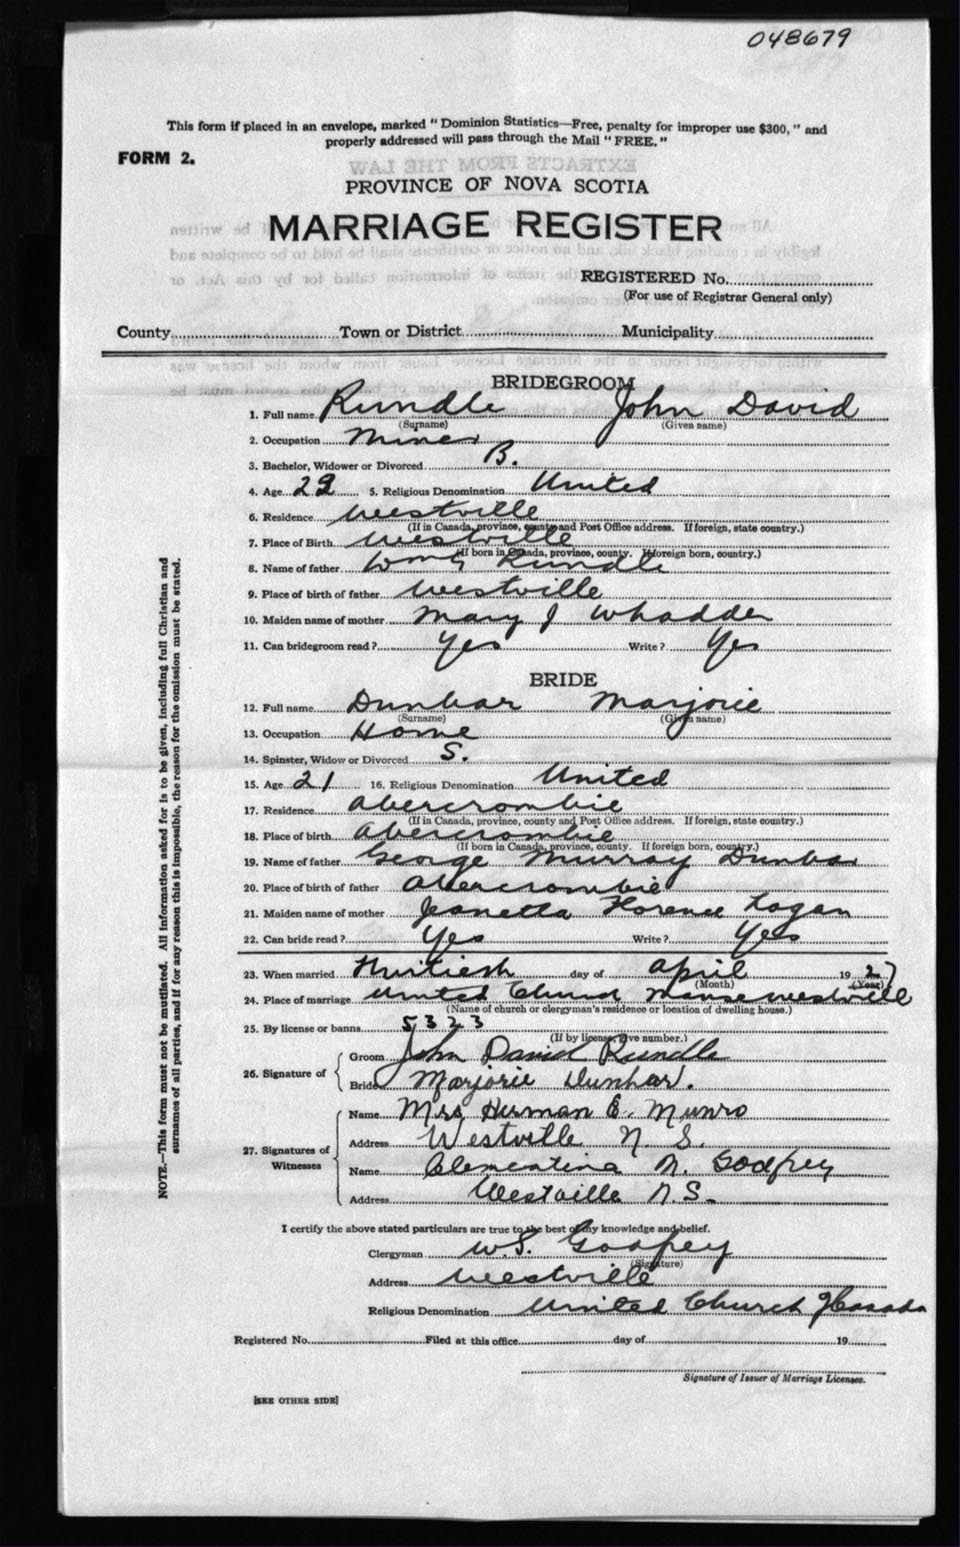 048679
This form if placed in an envelope, marked "Dominion Statistics—Free, penalty for improper use $300," and
properly addressed will pass through the Mail "FREE."
FORM 2.
EXTRACTS FROM THE LAW
PROVINCE OF NOVA SCOTIA
MARRIAGE REGISTER
REGISTERED No.
(For use of Registrar General only)
County Town or District Municipality
BRIDEGROOM
1. Full name Rundle John David
(Surname) (Given name)
2. Occupation Miner
3. Bachelor, Widower or Divorced B.
4. Age 22 5. Religious Denomination United
6. Residence Westville
(If in Canada, province, county and Post Office address. If foreign, state country.)
7. Place of Birth Westville
(If born in Canada, province, county. If foreign born, country.)
8. Name of father Rundle
9. Place of birth of father Westville
10. Maiden name of mother Mary J Whadden
11. Can bridegroom read? Yes Write? Yes
BRIDE
12. Full name Dunbar Marjorie
(Surname) (Given name)
13. Occupation Home
14. Spinster, Widow or Divorced S.
15. Age 21 16. Religious Denomination United
17. Residence Abercrombie
(If in Canada, province, county and Post Office address. If foreign, state country.)
18. Place of birth Abercrombie
(If born in Canada, province, county. If foreign born, country.)
19. Name of father George Murray Dunbar
20. Place of birth of father Abercrombie
21. Maiden name of mother Jeanetta Florence Logan
22. Can bride read? Yes Write? Yes
23. When married Thirtieth day of April 1927
(Month) (Year)
24. Place of marriage United Church Manse Westville
(Name of church or clergyman's residence or location of dwelling house.)
25. By license or banns 5323
(If by license, give number.)
26. Signature of
Groom John David Rundle
Bride Marjorie Dunbar.
27. Signatures of Witnesses
Name Mrs Herman E. Munro
Address Westville N. S.
Name Clementina M. Godfrey
Address Westville N.S.
I certify the above stated particulars are true to the best of my knowledge and belief.
Clergyman W.S. Godfrey
(Signature)
Address Westville
Religious Denomination United Church of Canada
Registered No. Filed at this office day of 19
Signature of Issuer of Marriage Licenses.
[SEE OTHER SIDE]
NOTE.—This form must not be mutilated. All information asked for is to be given, including full Christian and
surnames of all parties, and if for any reason this is impossible, the reason for the omission must be stated.